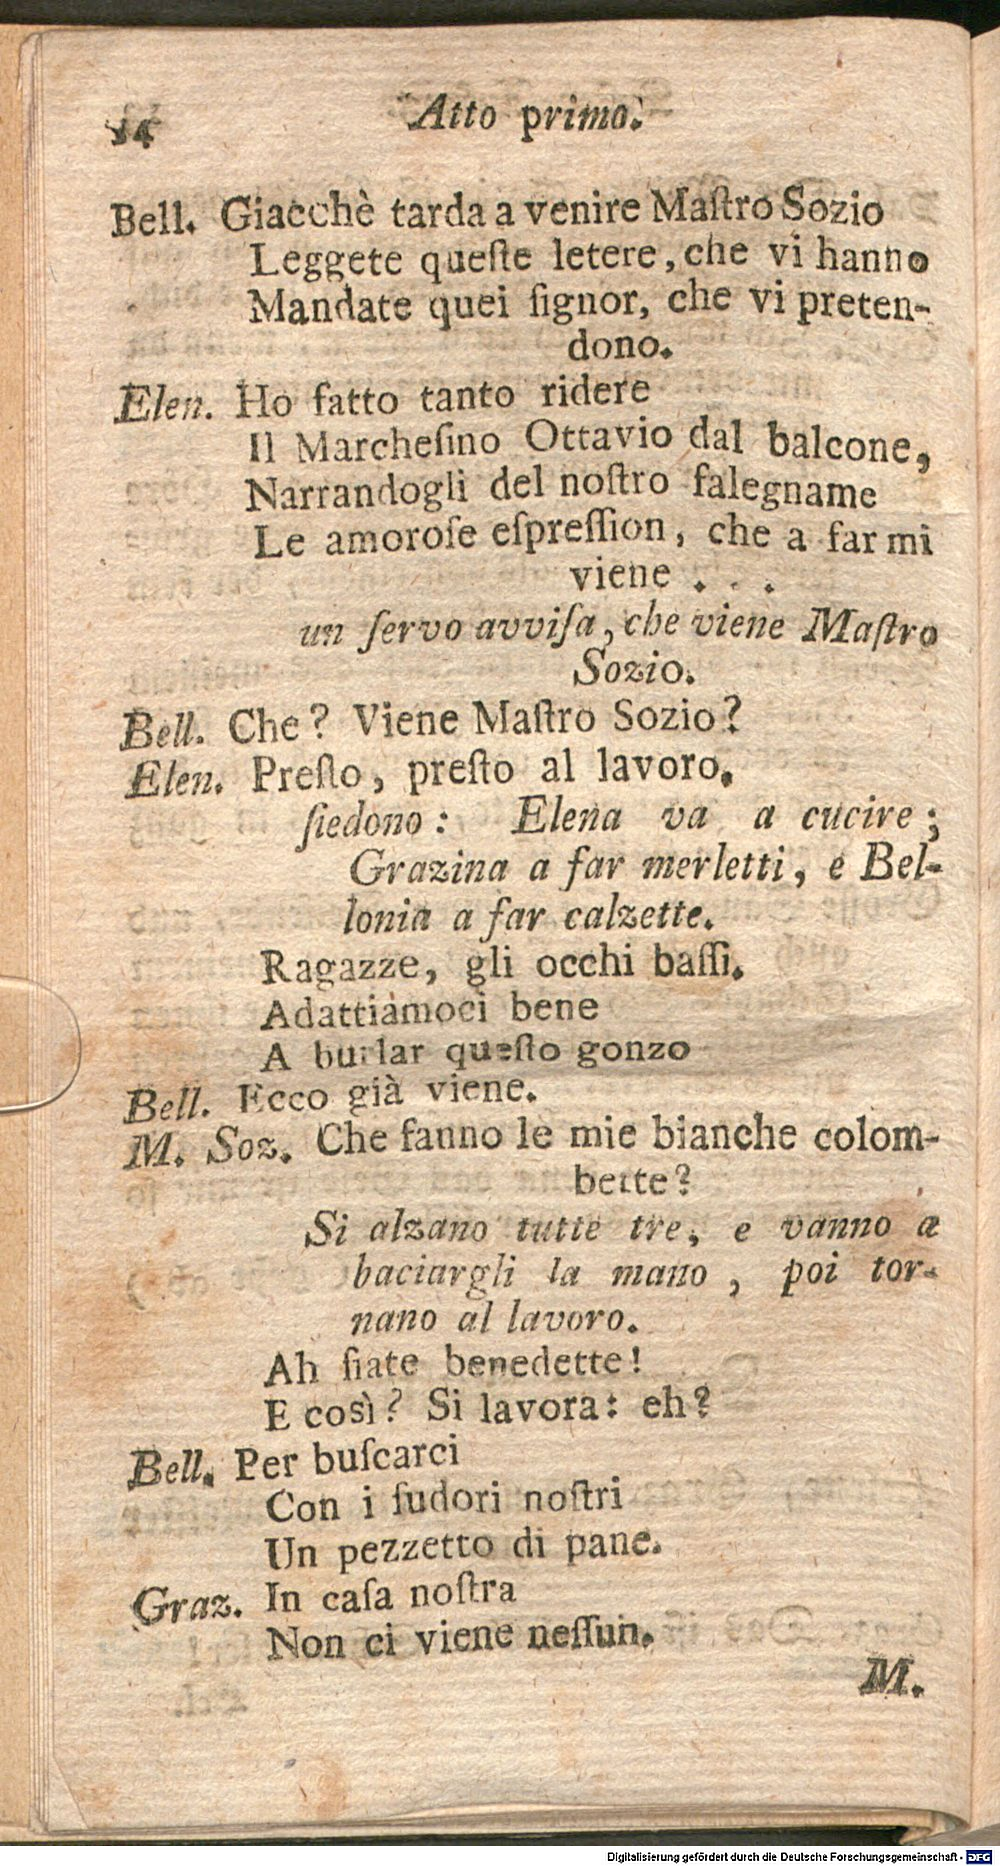 14 Atto primo.
Bell. Giacchè tarda a venire Maſtro Sozio
Leggete queſte letere, che vi hanno
Mandate quei ſignor, che vi preten-
dono.
Elen. Ho fatto tanto ridere
Il Marcheſino Ottavio dal balcone,
Narrandogli del noſtro falegname
Le amoroſe eſpreſſion, che a far mi
viene . . .
un ſervo avviſa, che viene Maſtro
Sozio.
Bell. Che? Viene Maſtro Sozio?
Elen. Preſto, preſto al lavoro.
ſiedono: Elena va a cucire;
Grazina a far merletti, e Bel-
lonia a far calzette.
Ragazze, gli occhi baſſi.
Adattiamoci bene
A burlar queſto gonzo
Bell. Ecco già viene.
M. Soz. Che fanno le mie bianche colom-
bette?
Si alzano tutte tre, e vanno a
baciargli la mano, poi tor-
nano al lavoro.
Ah ſiate benedette!
E così? Si lavora: eh?
Bell. Per buſcarci
Con i ſudori noſtri
Un pezzetto di pane.
Graz. In caſa noſtra
Non ci viene neſſun.
M.
Digitalisierung gefördert durch die Deutsche Forschungsgemeinschaft - DFG